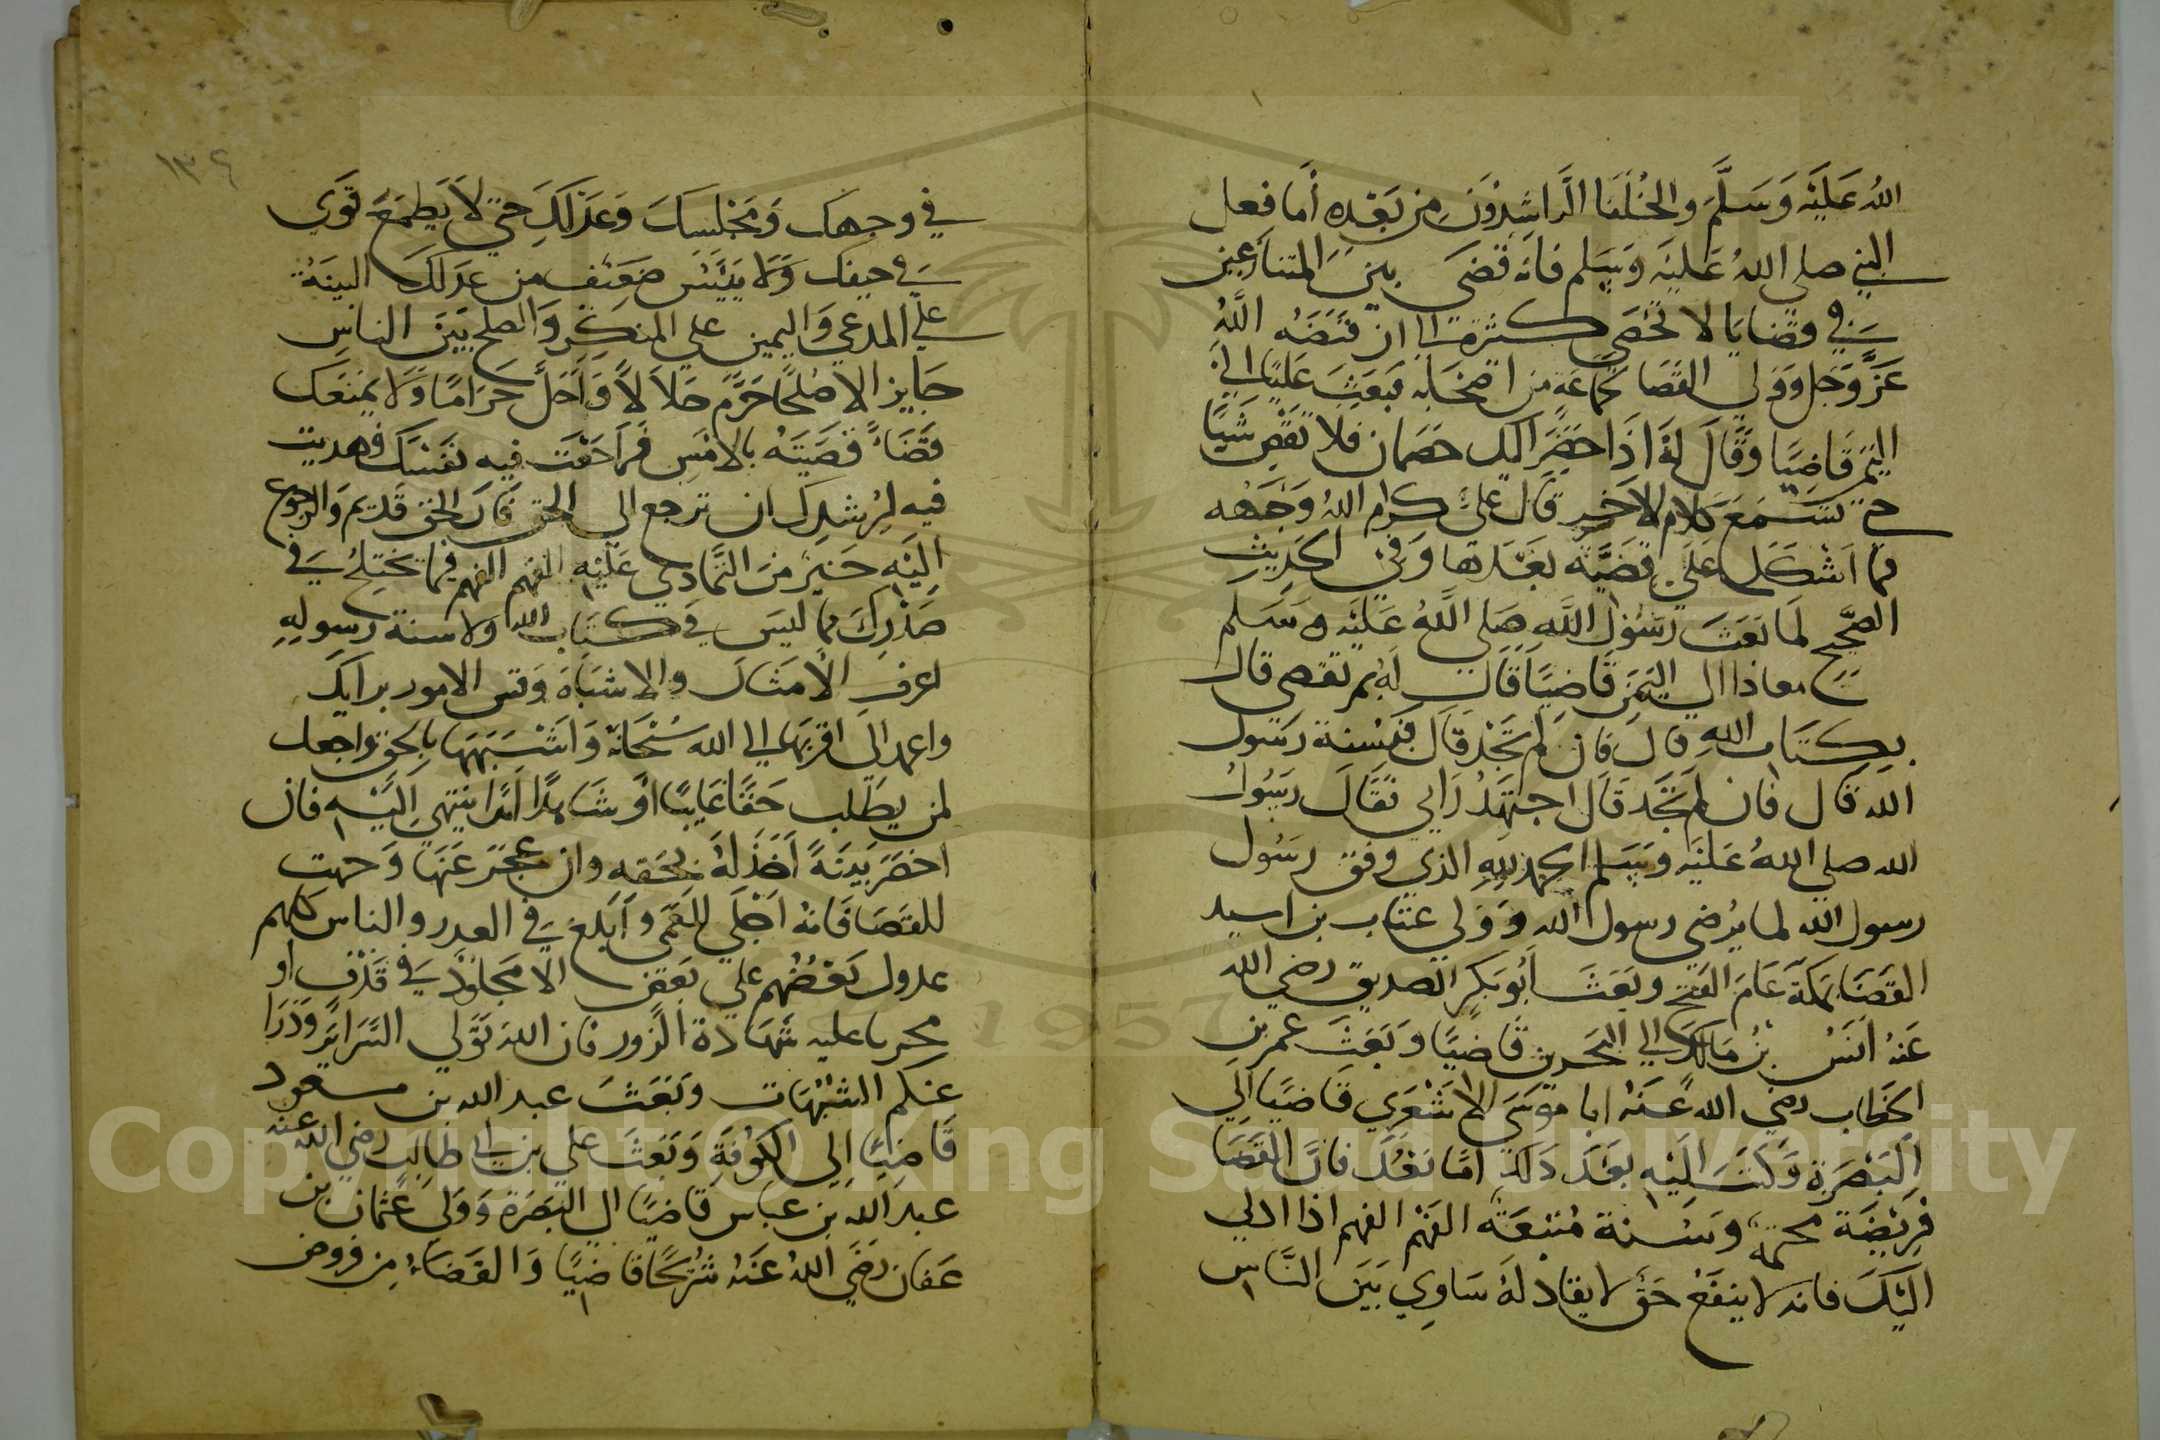 الله عَلَيْه وَسَلَّمَ والخُلَفَا الرَّاشِدُونَ مِن بَعْدِه أمَا فعل
النبي صلي الله عَليْه وَسَلم فانه قَضَى بين المتنازعين
في قضايا لا تُحْصَي كثرة الى ان قَبَضَهُ اللَّهُ
عَزَّ وَجَل وَوَلي القَضَا جماعَة من اصْحَابه فبَعَثَ عَليًا الي
اليَمَن قَاضيًا وَقَالَ لهُ اذَا حَضَرَ اليك خَصمان فلا تقْض شَيًا
حتي تسْمَعَ كلام الاخر قال عليٌ كرم اللهُ وَجَهَه
فما اَشْكَل عَلَيَّ قَضيَّة بَعْدَهَا وَفي الحَدِيثِ
الصَّحيح لمَا بَعَثَ رَسُوْلُ اللَّهِ صَلي اللَّهُ عَليْه وَسَلم
معاذا الي اليَمَن قَاضيًا قال لهُ بم تقضي قال
بِكتَاب اللهِ قال فان لم تَجدْ قَال فبسُنة رَسُول
الله قَال فَان لم تَجد قال اجتَهدُ رَايي فَقَالَ رَسُولُ
الله صلي اللهُ عَليْه وَسَلم الحَمد للهِ الذي وفق رسُول
رسول الله لما يُرضي رسول الله وَوَلي عتاب بن اسيد
القَضَا بمكة عَامَ الفَتْح وبَعَثَ اَبُو بَكر الصديق رضي الله
عَنهُ اَنَسَ بنُ مَالك الي البَحرين قَاضيًا وَبَعَثَ عمر بن
الخَطاب رضي الله عَنهُ ابا مُوسَي الاشْعَري قَاضيًا الَي
البَصْرَة وَكتَبَ اليْهِ بعْدَ ذَلكَ امّا بَعْد فانَّ القَضَا
فَرِيْضَة محكمة وَسُنة مُتبعَة الفهْم الفهم اذا ادلي
اليْكَ فانه لا ينفَعُ حَق لا نفاد لهُ سَاوِي بَيَن النَّاس
١٣٤
في وجهك وَمَجْلِسِكَ وَعَدْلكَ حتي لاَ يَطمَعَ قَوَي
في حيفك وَلا يَيْئَسَ ضَعيْف من عَدْلكَ البينَةُ
عَلي المدعي وَاليمين علي المنكر وَالصلح بَيْنَ الناس
جَايز الا صُلحًا حَرَّمَ حَلاَلاً وَاَحَلَّ حَرَامًا وَلاَ يمْنعَكَ
قَضَاءٌ قَضَيَتَهُ بالاَمْسِ فَرَاجَعْتَ فيه نَفَسْكَ فهديت
فيه لرُشدكَ ان ترجع الي الحق فَانَ الحق قَديم وَالرجوع
اليْهِ خَيْرٌ منَ التَّمَادي عَليْهِ الفهم الفهم فيما يَختلجُ في
صَدْركَ مما ليسَ في كتَاب الله ولا سنة رسولِهِ
اعرفِ الاَمْثَالَ والاشبَاهَ وَقس الامور برايكَ
واعمد الَى اقربهَا الي الله سُبْحَانَهُ وَاَشْبَهَهَا بالحق واجعل
لمن يطلب حَقًا غَايبًا اوْ شَاهدًا اَمَدًا ينتهي اليْهِ فان
احْضَرَ بَيِنَةً اَخَذَ لَهُ بحَقه وان عَجَزَ عَنهَا وَجهت
للقَضَا فَانهُ اَجْلَي للعَمَى وَ اَبْلغ في العدر والناس كلهم
عدول بَعْضُهم علي بَعْض الا مَجلودٌ في قَذْف او
مجربا عليه شَهَادة الزُور فان اللهَ تَوَّلي السَّرَايَر وَدَرَا
عنكم الشبُهَات وبَعَثَ عبد الله بن مسعود
قَاضيًا اِلى الكوفَةِ وَبَعَثَ علي بن ابي طالب رضي الله عنه
عبد الله بن عباس قاضيًا الى البَصَرَة وَوَلي عثمان بن
عفان رَضي اللهُ عَنهُ شُريحًا قاضيًا وَالقَضَاءُ مِن فروض